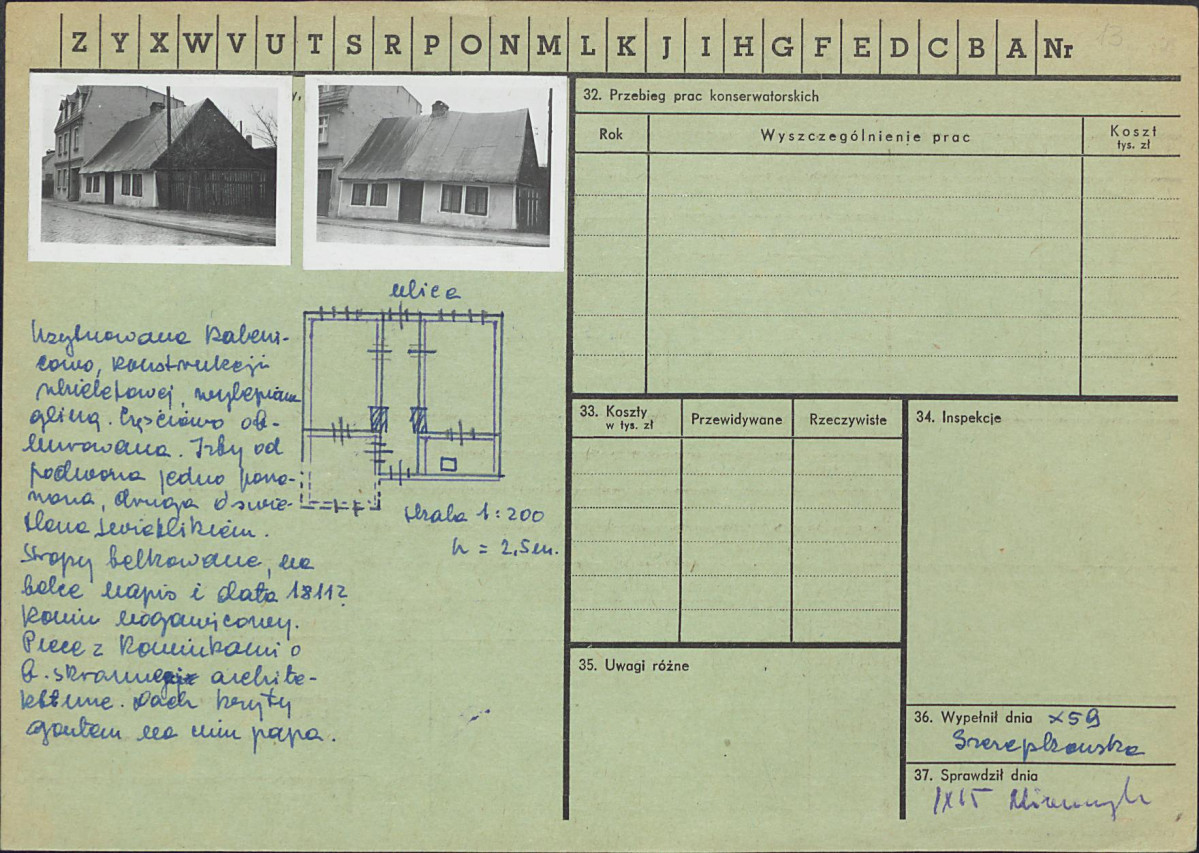 Z Y X W V U T S R P O N M L K J I H G F E D C B A Nr
13
32. Przebieg prac konserwatorskich
Rok
Wyszczególnienie prac
Koszt
tys. zł
ulica
skala 1:200
h = 2,5m.
konstrukcji
gliną. Częściowo ob-
murowana. Izby od
podwórza jedna
druga oświe-
tlona świetlikiem.
Stropy belkowane, na
belce napis i data 1811?
Komin
Piece z kominkami o
b. skromnej archite-
kturze. Dach kryty
gontem na nim papa.
33. Koszty
w tys. zł
Przewidywane
Rzeczywiste
34. Inspekcje
35. Uwagi różne
36. Wypełnił dnia X 59
37. Sprawdził dnia